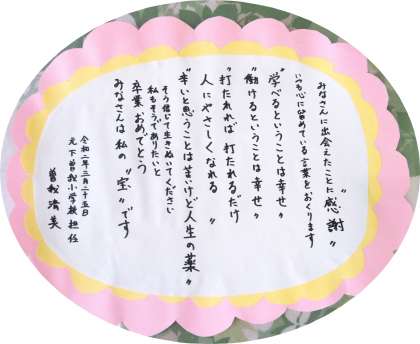 みなさんに出会えたことに"感謝"
いつも心に留めている言葉をおくります
"学べるということは幸せ"
"働けるということは幸せ"
"打たれれば打たれるだけ
人にやさしくなれる"
"辛いと思うことは苦いけど人生の薬"
そう信じて生きぬいてください
私もそうでありたいと
卒業おめでとう
みなさんは私の"宝"です
令和二年三月二十五日
元下曽我小学校担任
曽我清美